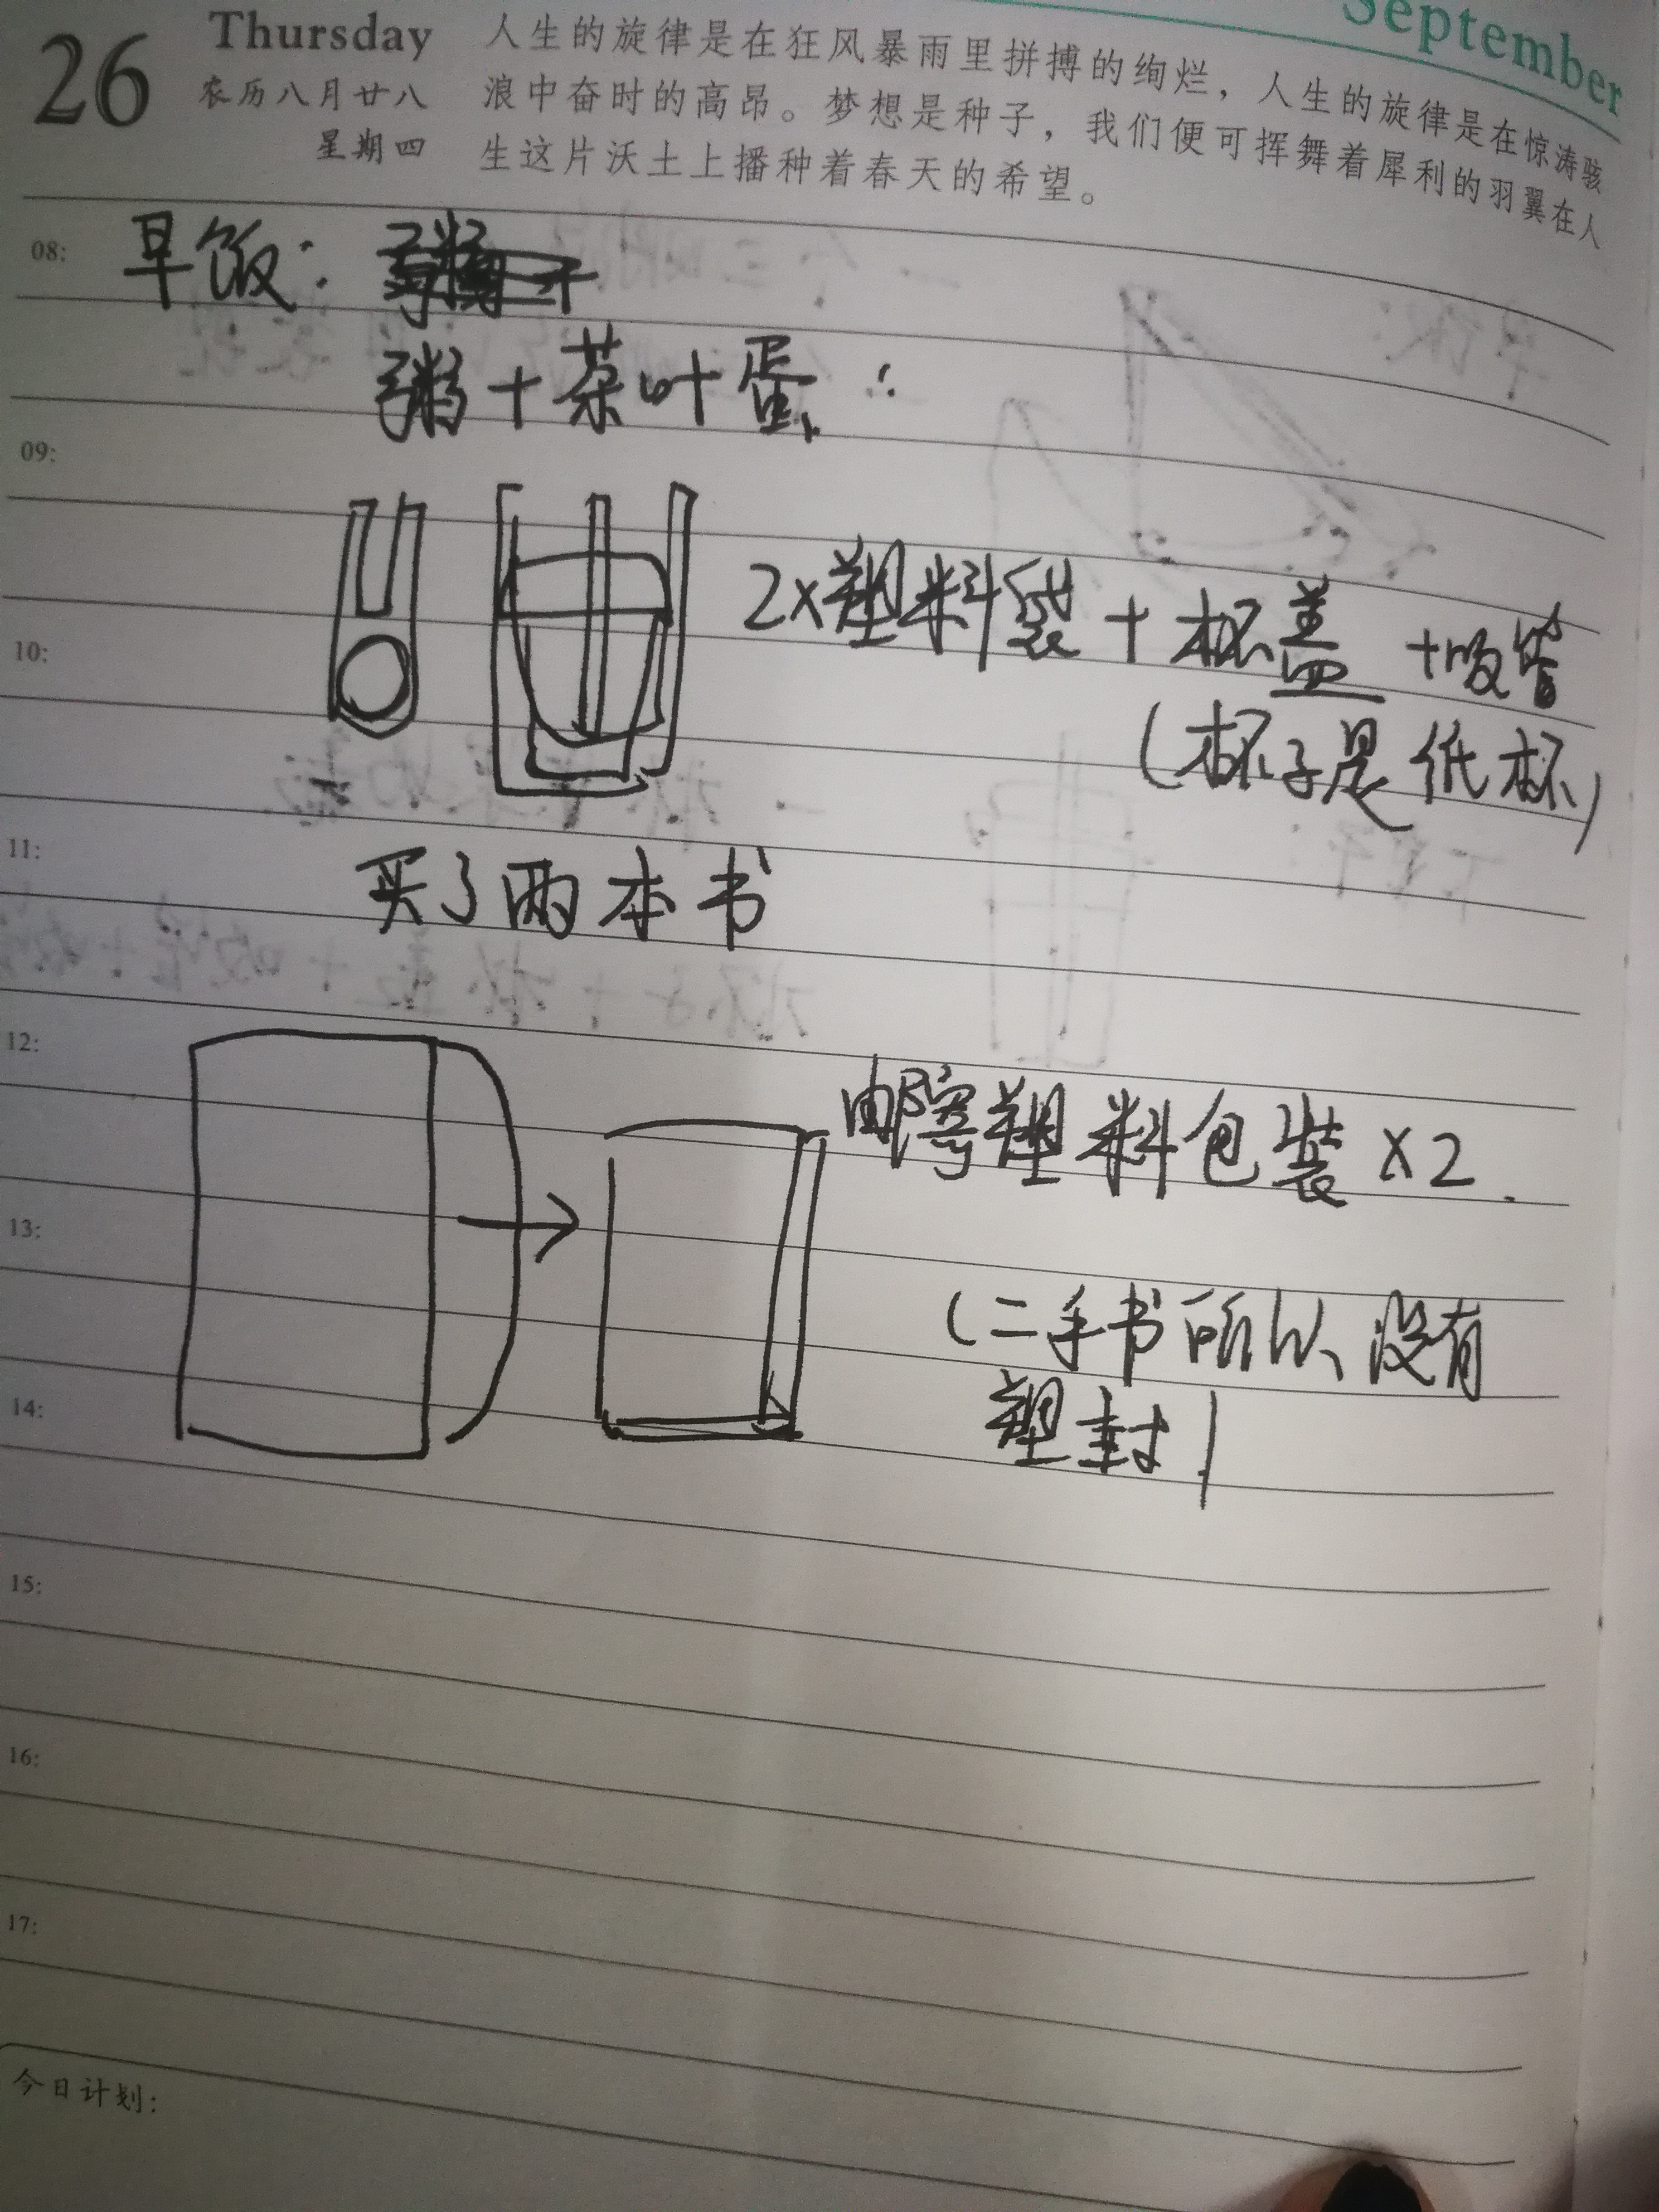 September
26 Thursday
农历八月廿八
星期四
人生的旋律是在狂风暴雨里拼搏的绚烂，人生的旋律是在惊涛骇
浪中奋时的高昂。梦想是种子，我们便可挥舞着犀利的羽翼在人
生这片沃土上播种着春天的希望。
08:
早饭：
粥+茶叶蛋
09:
2x塑料袋+杯盖+吸管
10:
(杯子是低杯)
11:
买了两本书
12:
邮寄塑料包装x2.
13:
(二手书所以没有
14:
塑封)
15:
16:
17:
今日计划：